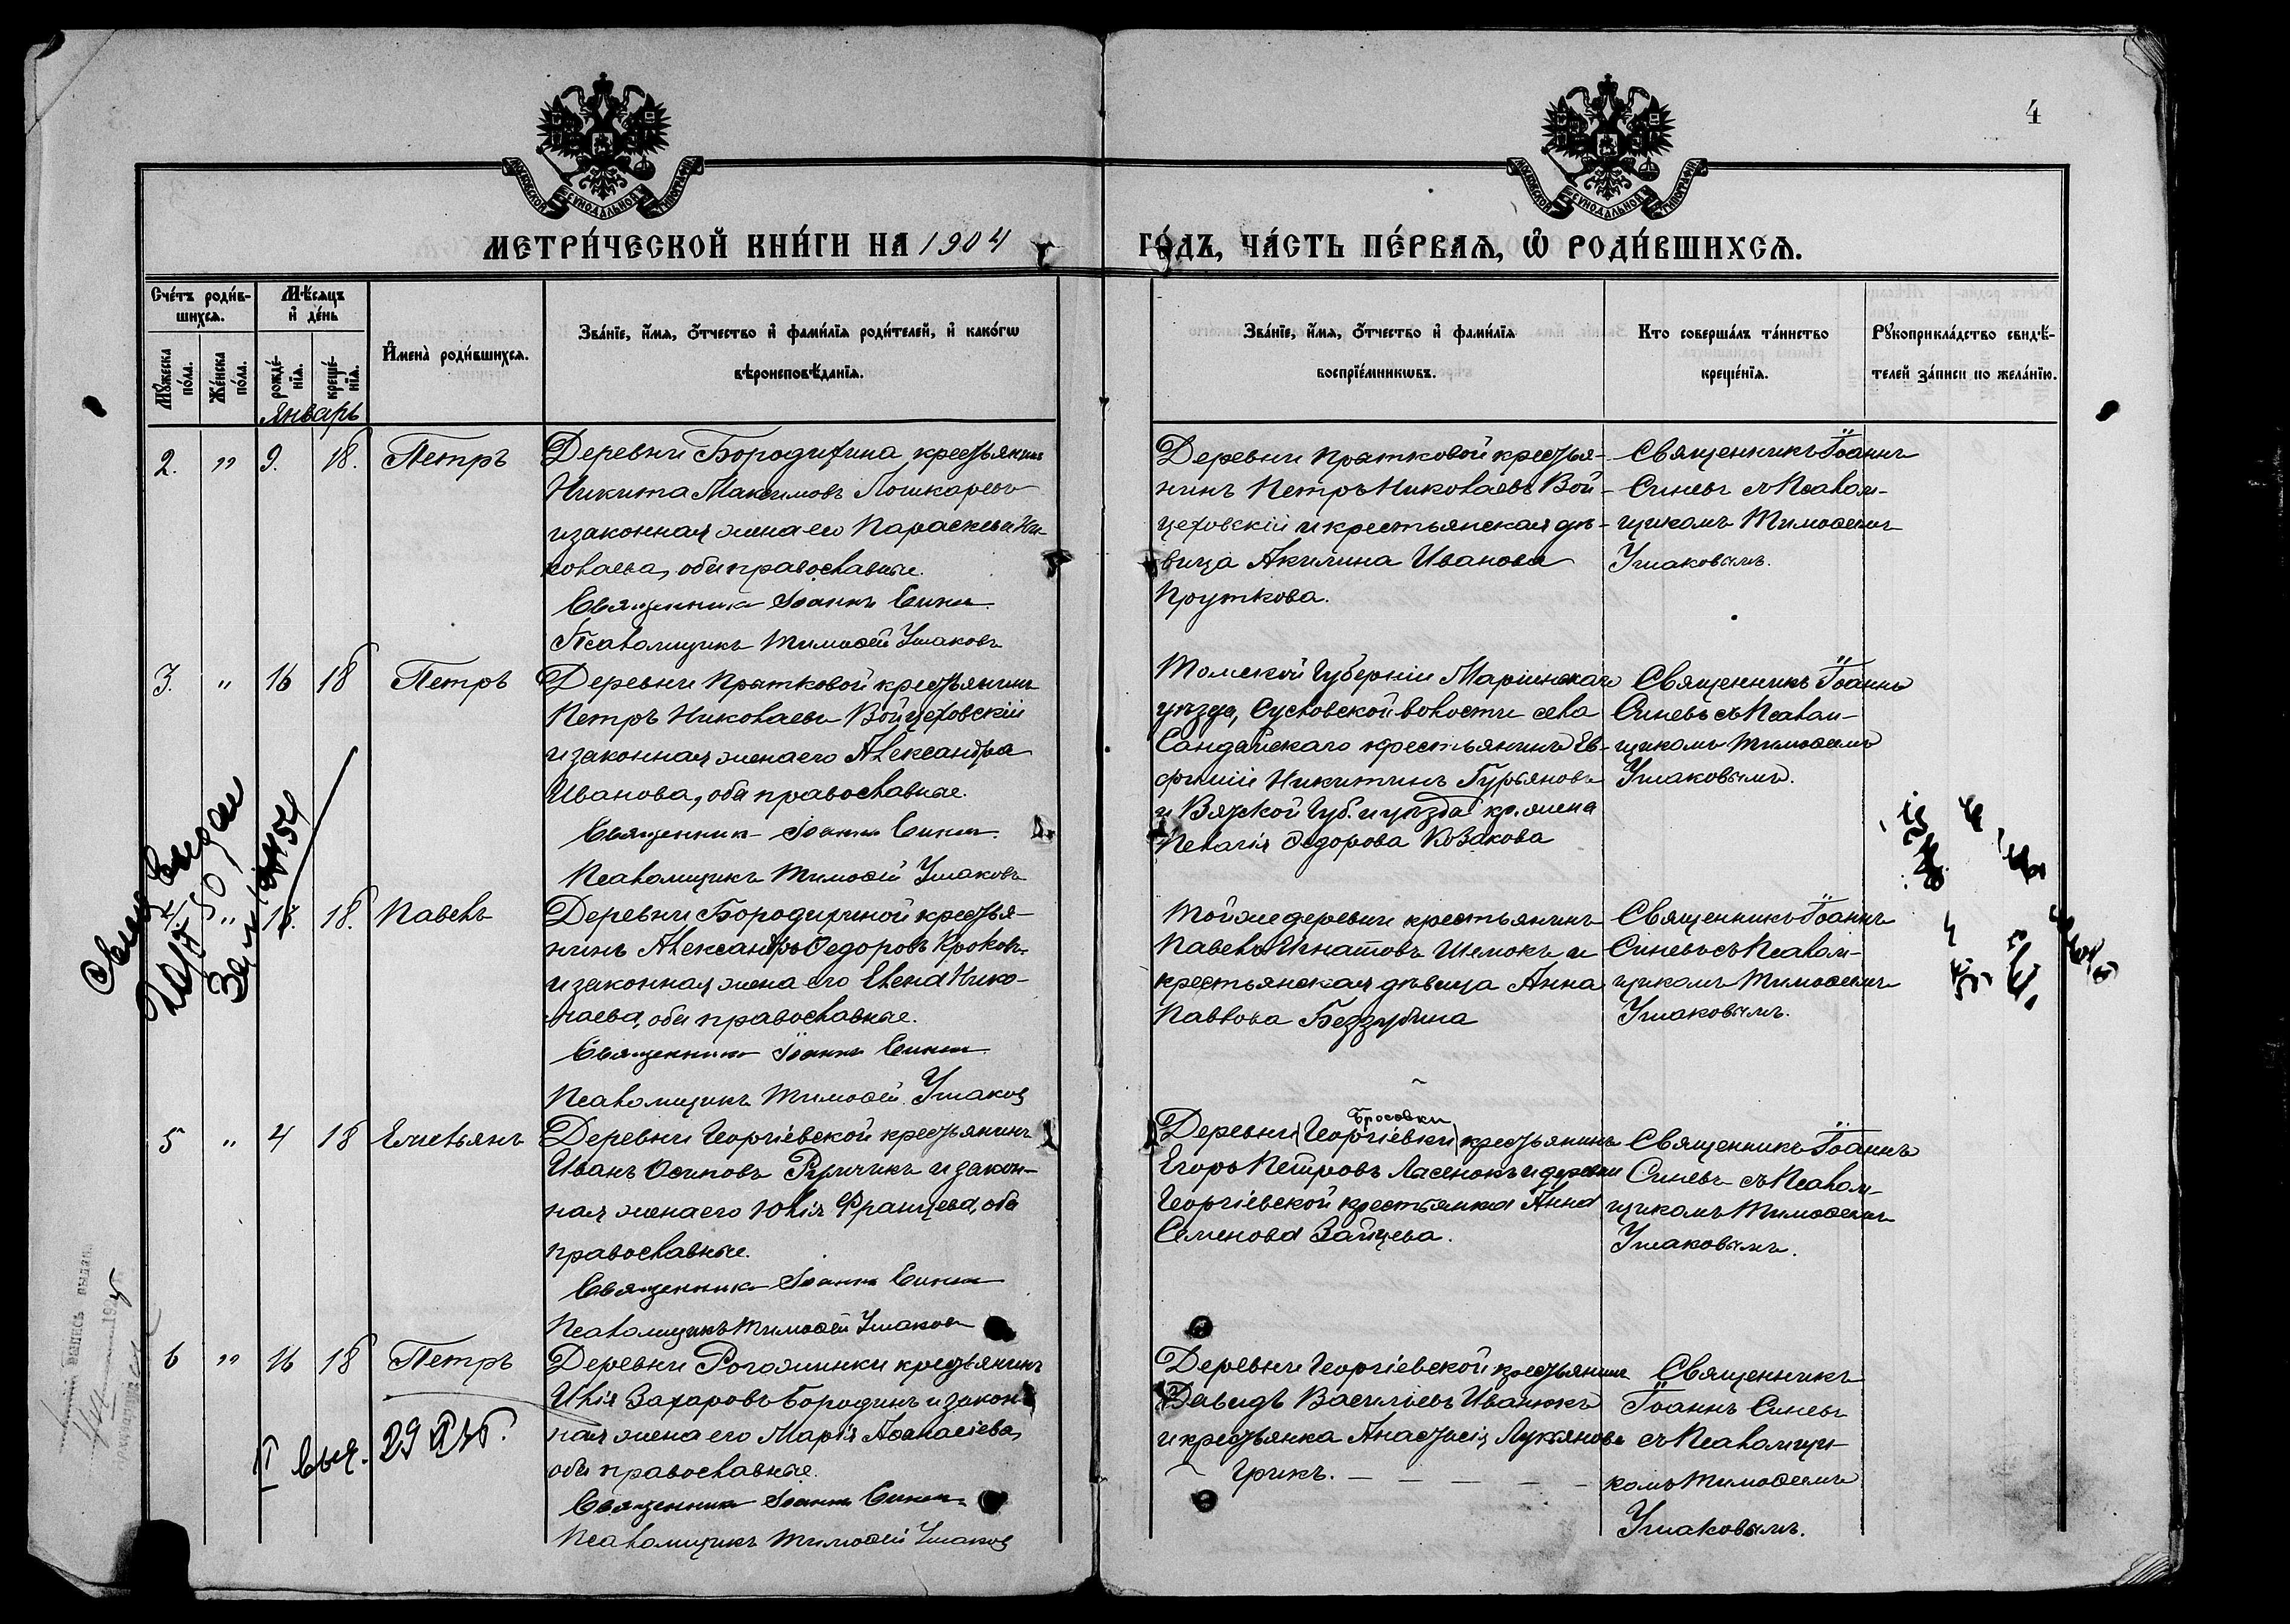 4
МОСКОВСКОЙ СѴНОДАЛЬНОЙ ТИПОГРАФІИ
МОСКОВСКОЙ СѴНОДАЛЬНОЙ ТИПОГРАФІИ
МЕТРИ́ЧЕСКОЙ КНИ́ГИ НА 1904 ГО́ДЪ, ЧА́СТЬ ПЕ́РВАѦ, Ѡ҆ РОДИ́ВШИХСѦ.
Сче́тъ роди́в-
шихсѧ.
Мꙋ́жеска
по́ла.
Же́нска
по́ла.
Мѣ́сѧцъ
и҆ де́нь
рожде́-
нїѧ.
креще́-
нїѧ.
Январь
И҆мена̀ роди́вшихсѧ.
Зва́нїе, и҆́мѧ, ѻ҆́тчество и҆ фами́лїѧ роди́телей, и҆ како́гѡ
вѣроисповѣ́данїѧ.
Зва́нїе, и҆́мѧ, ѻ҆́тчество и҆ фами́лїѧ
воспрїе́мникѡвъ.
Кто соверша́лъ та́инство
креще́нїѧ.
Рꙋкоприкла́дство свидѣ́-
телей за́писи по жела́нїю.
2. " 9. 18. Петръ
Деревни Бородихина крестьянинъ
Никита Максимовъ Лошкаревъ
и законная жена его Параскева Ни-
колаева, оба православные.
Священникъ Іоаннъ Синев
Псаломщикъ Тимоѳей Ушаковъ
Деревни Пратковой крестья-
нинъ Петръ Николаевъ Вой-
цеховскій и крестьянская дѣ-
вица Акилина Иванова
Пруткова.
Священникъ Іоаннъ
Синевъ съ Псалом-
щикомъ Тимоѳеемъ
Ушаковымъ.
3. " 16 18 Петръ
Деревни Пратковой крестьянинъ
Петръ Николаевъ Войцеховскій
и законная жена его Александра
Иванова, оба православные.
Священник Іоаннъ Синев
Псаломщикъ Тимоѳей Ушаковъ
Томской Губерніи Маріинскаго
уѣзда, Сусловской волости села
Сандайскаго крестьянинъ Ев-
фимій Никитинъ Гурьяновъ
и Вятской Губ. и уѣзда кр. жена
Пелагія Ѳедорова Козакова
Священникъ Іоаннъ
Синевъ съ Псалом-
щикомъ Тимоѳеемъ
Ушаковымъ.
" 18. Павелъ
Деревни Бородихиной крестья-
нинъ Александръ Ѳедоровъ
и законная жена его Елена Нико-
лаева, оба православные.
Священникъ Іоаннъ Синев
Псаломщикъ Тимоѳей Ушаковъ
Той же деревни крестьянинъ
Павелъ Игнатовъ Шемокъ и
крестьянская дѣвица Анна
Павлова Беззубина
Священникъ Іоаннъ
Синевъ съ Псалом-
щикомъ Тимоѳеемъ
Ушаковымъ.
5 " 4 18 Емельянъ
Деревни Георгіевской крестьянинъ
Иванъ Осиповъ и закон-
ная жена его Юлія Францева, оба
православные.
Священникъ Іоаннъ Синев
Псаломщикъ Тимоѳей Ушаковъ
Бросовки
Деревни (Георгіевки) крестьянинъ
Егоръ Петровъ Ласенокъ и деревни
Георгіевской крестьянка Анна
Семенова Зайцева.
Священникъ Іоаннъ
Синевъ съ Псалом-
щикомъ Тимоѳеемъ
Ушаковымъ.
6 " 16 18 Петръ
Деревни Рогожинки крестьянинъ
Илія Захаровъ Бородинъ и закон-
ная жена его Марія Аѳанасіева,
оба православные.
Священникъ Іоаннъ Синев
Псаломщикъ Тимоѳей Ушаковъ
Деревни Георгіевской крестьянинъ
Давидъ Васильевъ Иванюкъ
и крестьянка Анастасія Лукьянова
Грикъ.
Священникъ
Іоаннъ Синевъ
съ Псаломщи-
комъ Тимоѳеемъ
Ушаковымъ.